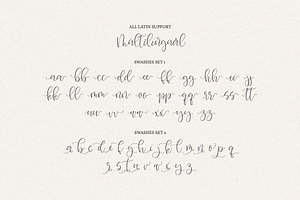 ALL LATIN SUPPORT
Multilingual
SWASHES SET 1
aa bb cc dd ee ff gg hh ii jj
kk ll mm nn oo pp qq rr ss tt
uu vv ww xx yy zz
SWASHES SET 2
a b c d e f g h i j k l m n o p q
r s t u v w x y z